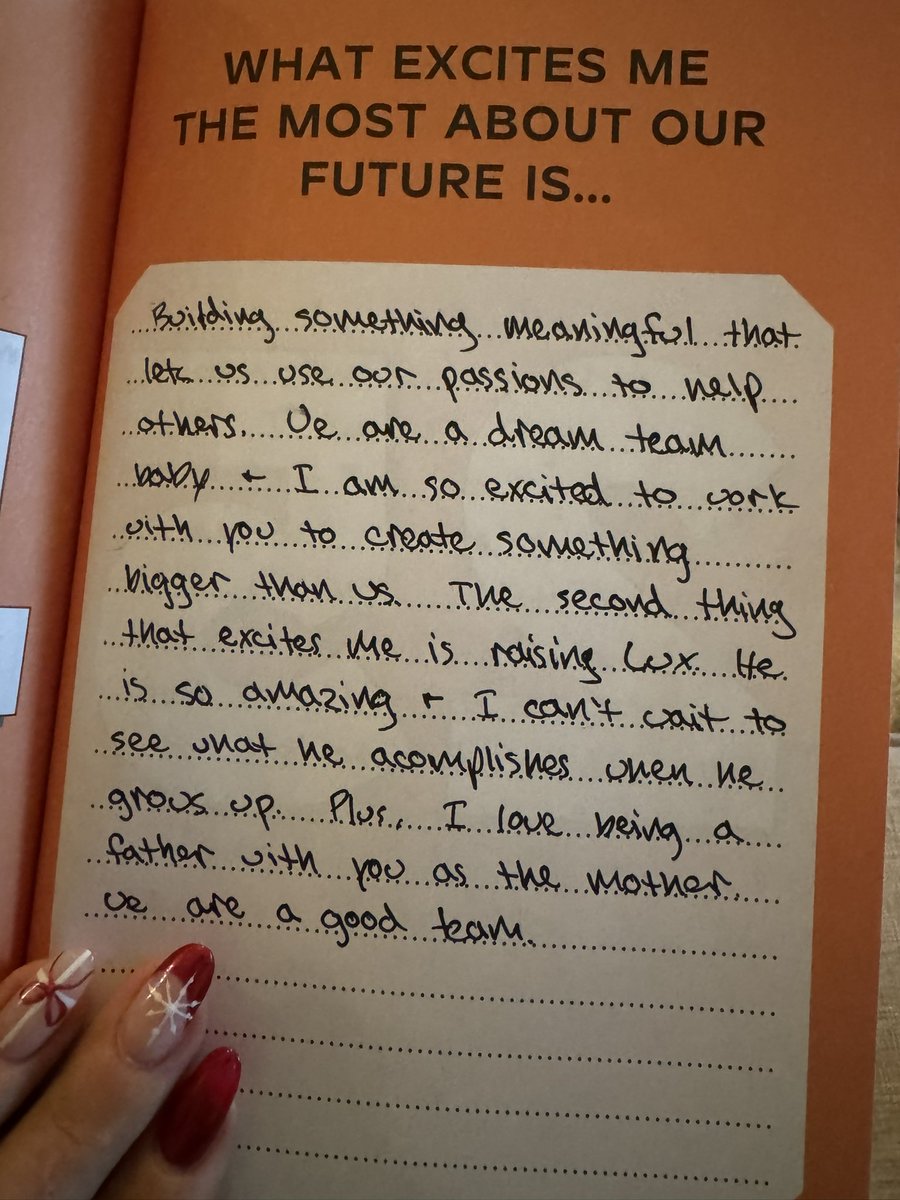 WHAT EXCITES ME
THE MOST ABOUT OUR
FUTURE IS...
Building something meaningful that
lets us use our passions to help
others. We are a dream team
baby + I am so excited to work
with you to create something
bigger than us. The second thing
that excites me is raising Lux. He
is so amazing + I can't wait to
see what he acomplishes when he
grows up. Plus, I love being a
father with you as the mother.
we are a good team.